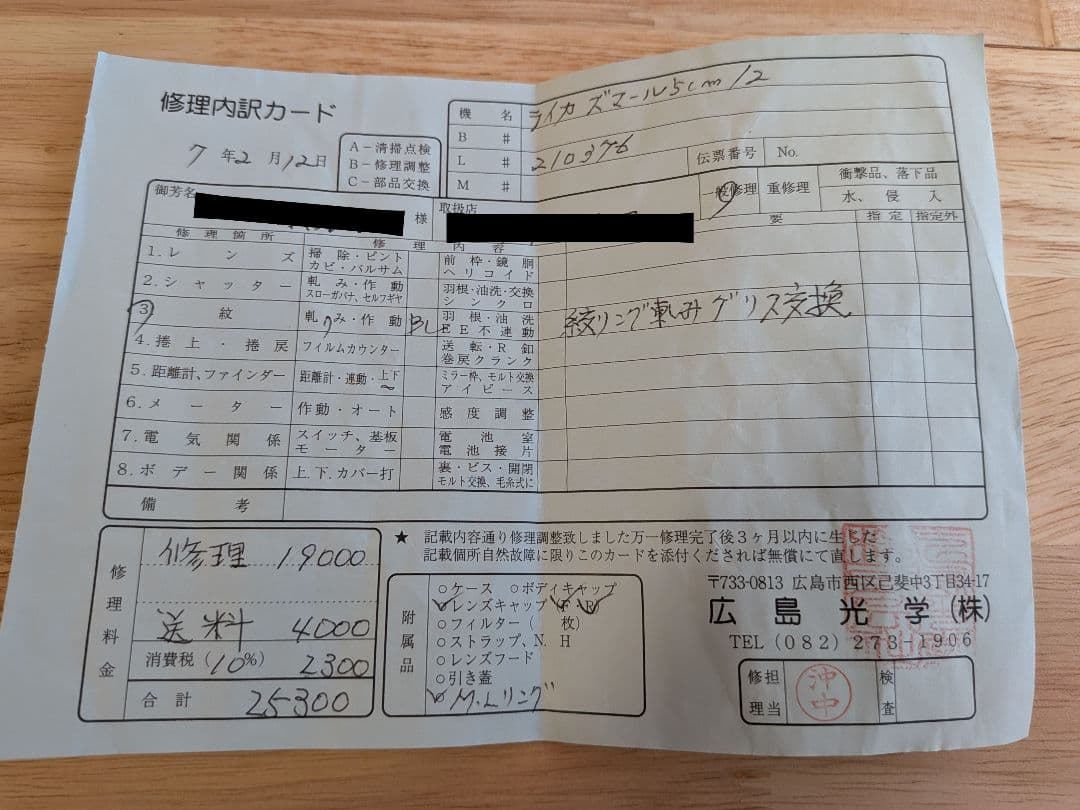 修理内訳カード
7年2月12日
A－清掃点検
B－修理調整
C－部品交換
機名 ライカ ズマール5cm/2
B #
L # 210376
M #
伝票番号 No.
御芳名 様
取扱店
一般修理 重修理
衝撃品、落下品
水、侵入
修理箇所 修理内容 要 指定 指定外
1.レンズ 掃除・ピント カビ・バルサム 前枠・鏡胴 ヘリコイド
2.シャッター 軋み・作動 スローガバナ、セルフギヤ 羽根・油洗・交換 シンクロ
3 紋 軋み・作動 BL 羽根・油洗 EE不連動 絞リング軋み グリス交換
4.捲上・捲戻 フイルムカウンター 送転・R釦 巻戻クランク
5.距離計、ファインダー 距離計・連動・上下～ ミラー枠、モルト交換 アイピース
6.メーター 作動・オート 感度調整
7.電気関係 スイッチ、基板 モーター 電池室 電池接片
8.ボデー関係 上.下.カバー打 裏・ビス・開閉 モルト交換、毛糸式に
備考
修理料金
修理 19000
送料 4000
消費税(10%) 2300
合計 25300
★ 記載内容通り修理調整致しました万一修理完了後3ヶ月以内に生じた
記載個所自然故障に限りこのカードを添付くだされば無償にて直します。
附属品
○ケース ○ボディキャップ
○レンズキャップ(F・R)
○フィルター( 枚)
○ストラップ、N. H
○レンズフード
○引き蓋
○M.Lリング
〒733-0813 広島市西区己斐中3丁目34-17
広島光学(株)
TEL(082)273-1906
修理担当 沖中 検査